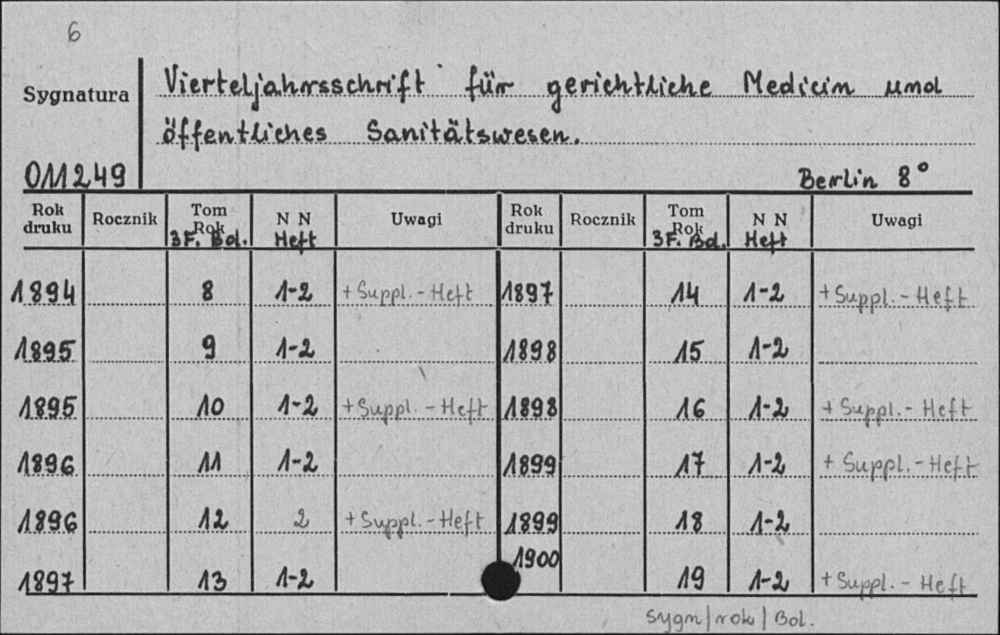 6
Sygnatura
Vierteljahrsschrift für gerichtliche Medicin und
öffentliches Sanitätswesen.
011249
Berlin 8°
Rok druku Rocznik Tom Rok 3F. Bd. N N Heft Uwagi Rok druku Rocznik Tom Rok 3F. Bd. N N Heft Uwagi
1894 8 1-2 + Suppl. - Heft 1897 14 1-2 + Suppl. - Heft
1895 9 1-2 1898 15 1-2
1895 10 1-2 + Suppl. - Heft 1898 16 1-2 + Suppl. - Heft
1896 11 1-2 1899 17 1-2 + Suppl. - Heft
1896 12 2 + Suppl. - Heft 1899 18 1-2
1897 13 1-2 1900 19 1-2 + Suppl. - Heft
sygn/rok/Bd.